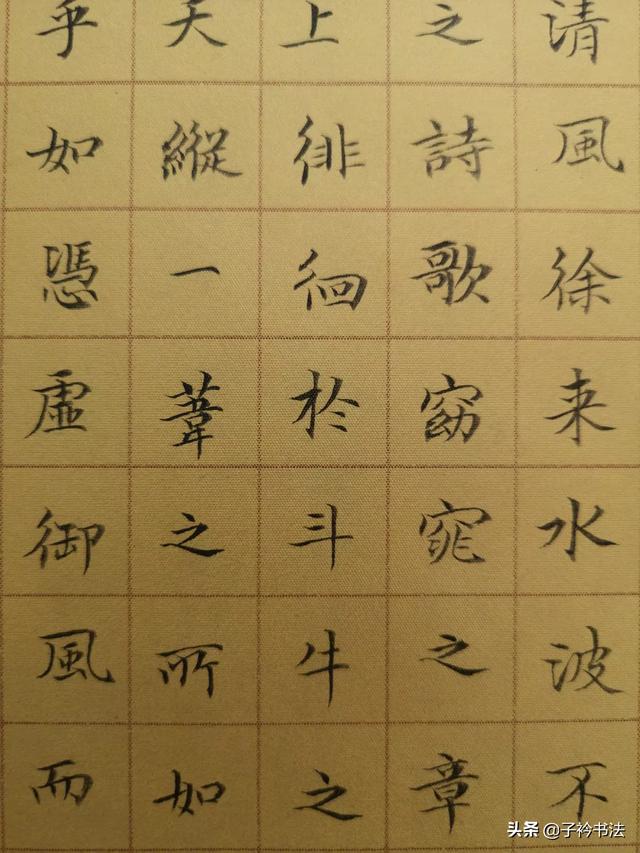 清風徐来水波不
之詩歌窈窕之章
上徘徊於斗牛之
天縱一葦之所如
乎如憑虚御風而
头条 @子衿书法